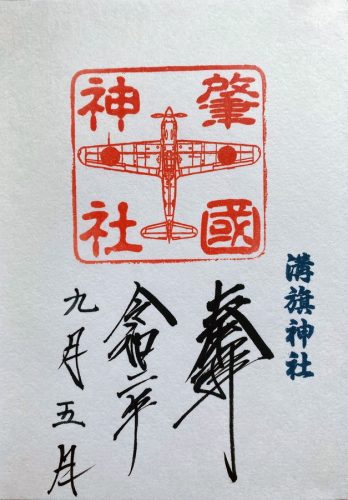 肇國
神社
溝旗神社
奉拝
令和二年
九月五日